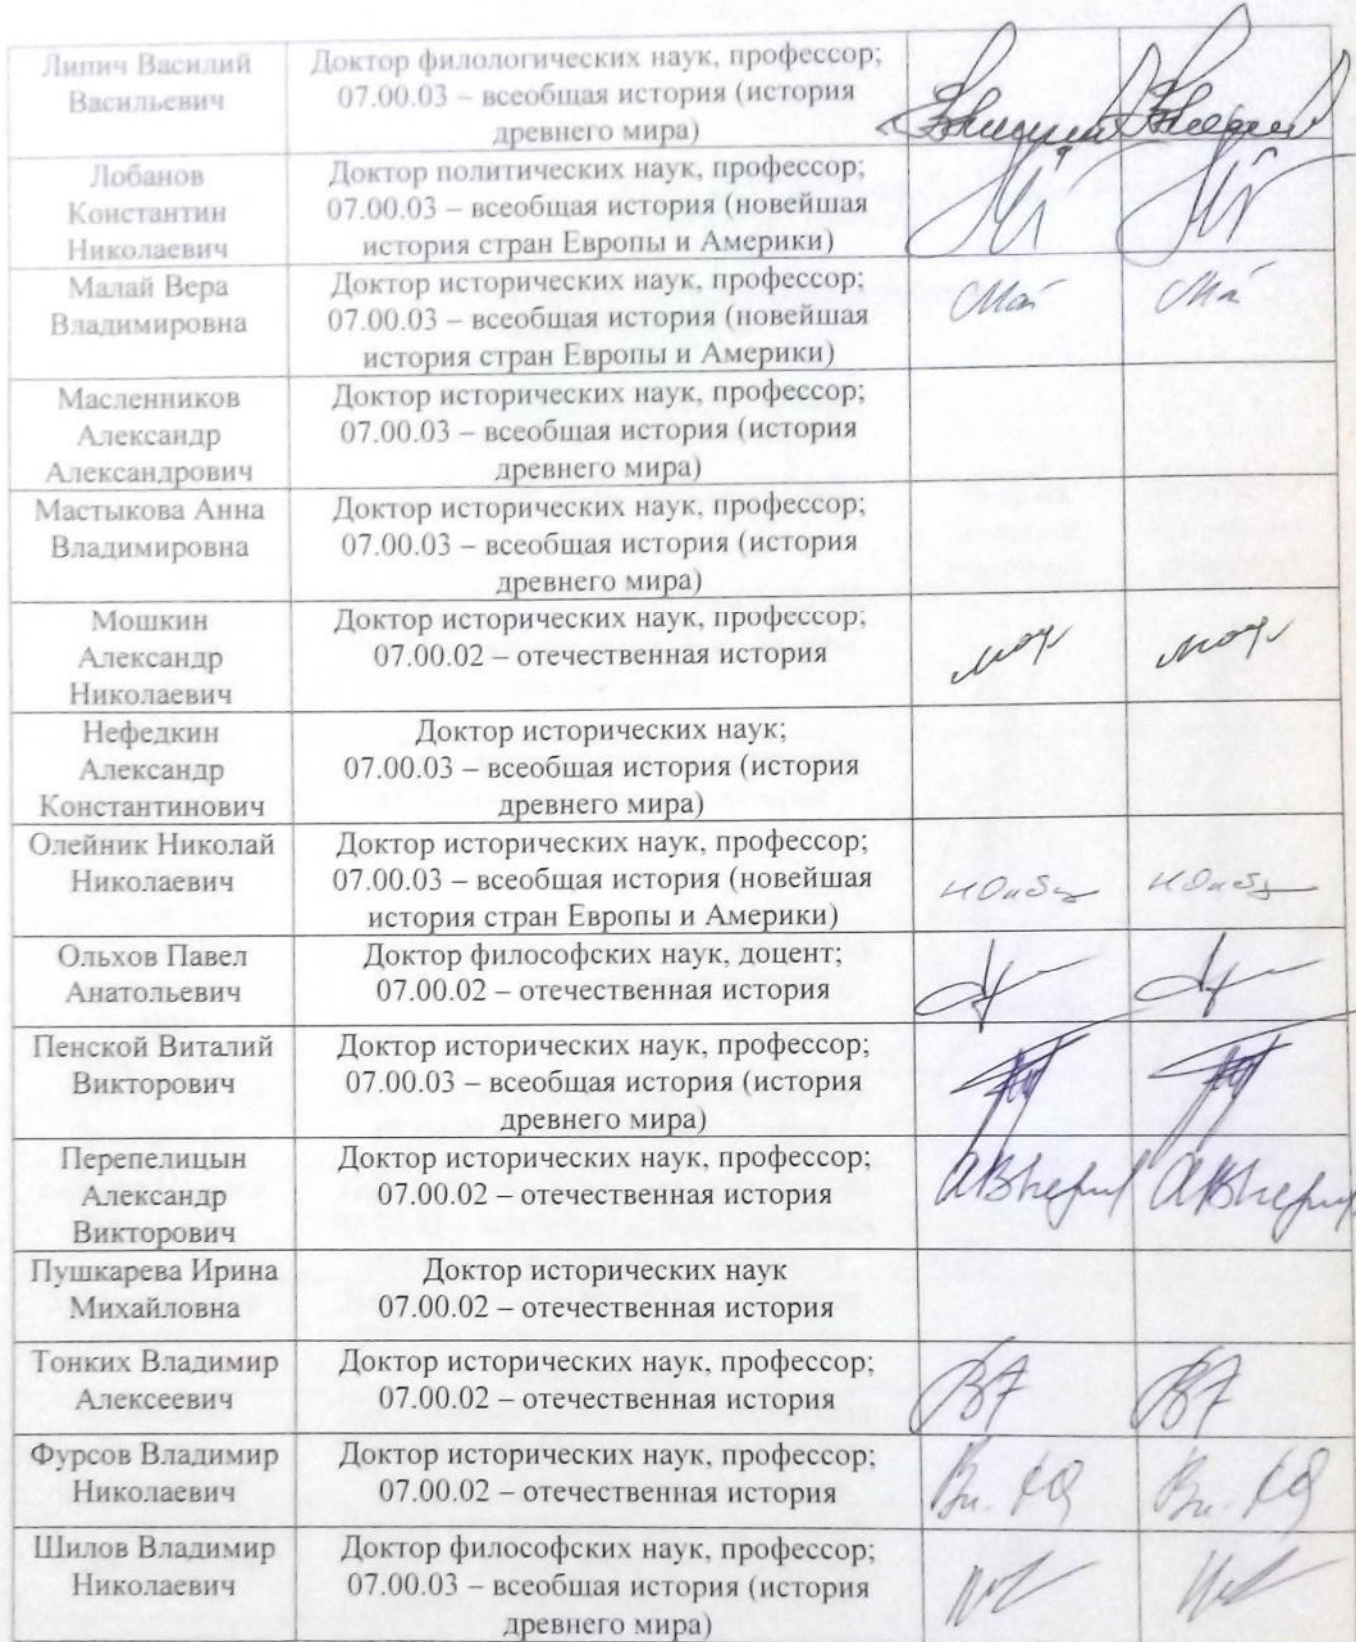 Липич Василий
Васильевич
Доктор филологических наук, профессор;
07.00.03 – всеобщая история (история
древнего мира)
Лобанов
Константин
Николаевич
Доктор политических наук, профессор;
07.00.03 – всеобщая история (новейшая
история стран Европы и Америки)
Малай Вера
Владимировна
Доктор исторических наук, профессор;
07.00.03 – всеобщая история (новейшая
история стран Европы и Америки)
Масленников
Александр
Александрович
Доктор исторических наук, профессор;
07.00.03 – всеобщая история (история
древнего мира)
Мастыкова Анна
Владимировна
Доктор исторических наук, профессор;
07.00.03 – всеобщая история (история
древнего мира)
Мошкин
Александр
Николаевич
Доктор исторических наук, профессор;
07.00.02 – отечественная история
Нефедкин
Александр
Константинович
Доктор исторических наук;
07.00.03 – всеобщая история (история
древнего мира)
Олейник Николай
Николаевич
Доктор исторических наук, профессор;
07.00.03 – всеобщая история (новейшая
история стран Европы и Америки)
Ольхов Павел
Анатольевич
Доктор философских наук, доцент;
07.00.02 – отечественная история
Пенской Виталий
Викторович
Доктор исторических наук, профессор;
07.00.03 – всеобщая история (история
древнего мира)
Перепелицын
Александр
Викторович
Доктор исторических наук, профессор;
07.00.02 – отечественная история
Пушкарева Ирина
Михайловна
Доктор исторических наук
07.00.02 – отечественная история
Тонких Владимир
Алексеевич
Доктор исторических наук, профессор;
07.00.02 – отечественная история
Фурсов Владимир
Николаевич
Доктор исторических наук, профессор;
07.00.02 – отечественная история
Шилов Владимир
Николаевич
Доктор философских наук, профессор;
07.00.03 – всеобщая история (история
древнего мира)